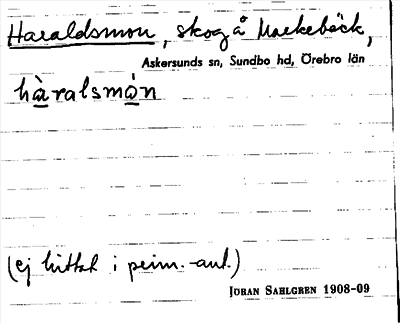 Haraldsmon, skog å Markebäck,
Askersunds sn, Sundbo hd, Örebro län
hàralsmón
(ej hittat i prim.-ant.)
JÖRAN SAHLGREN 1908-09